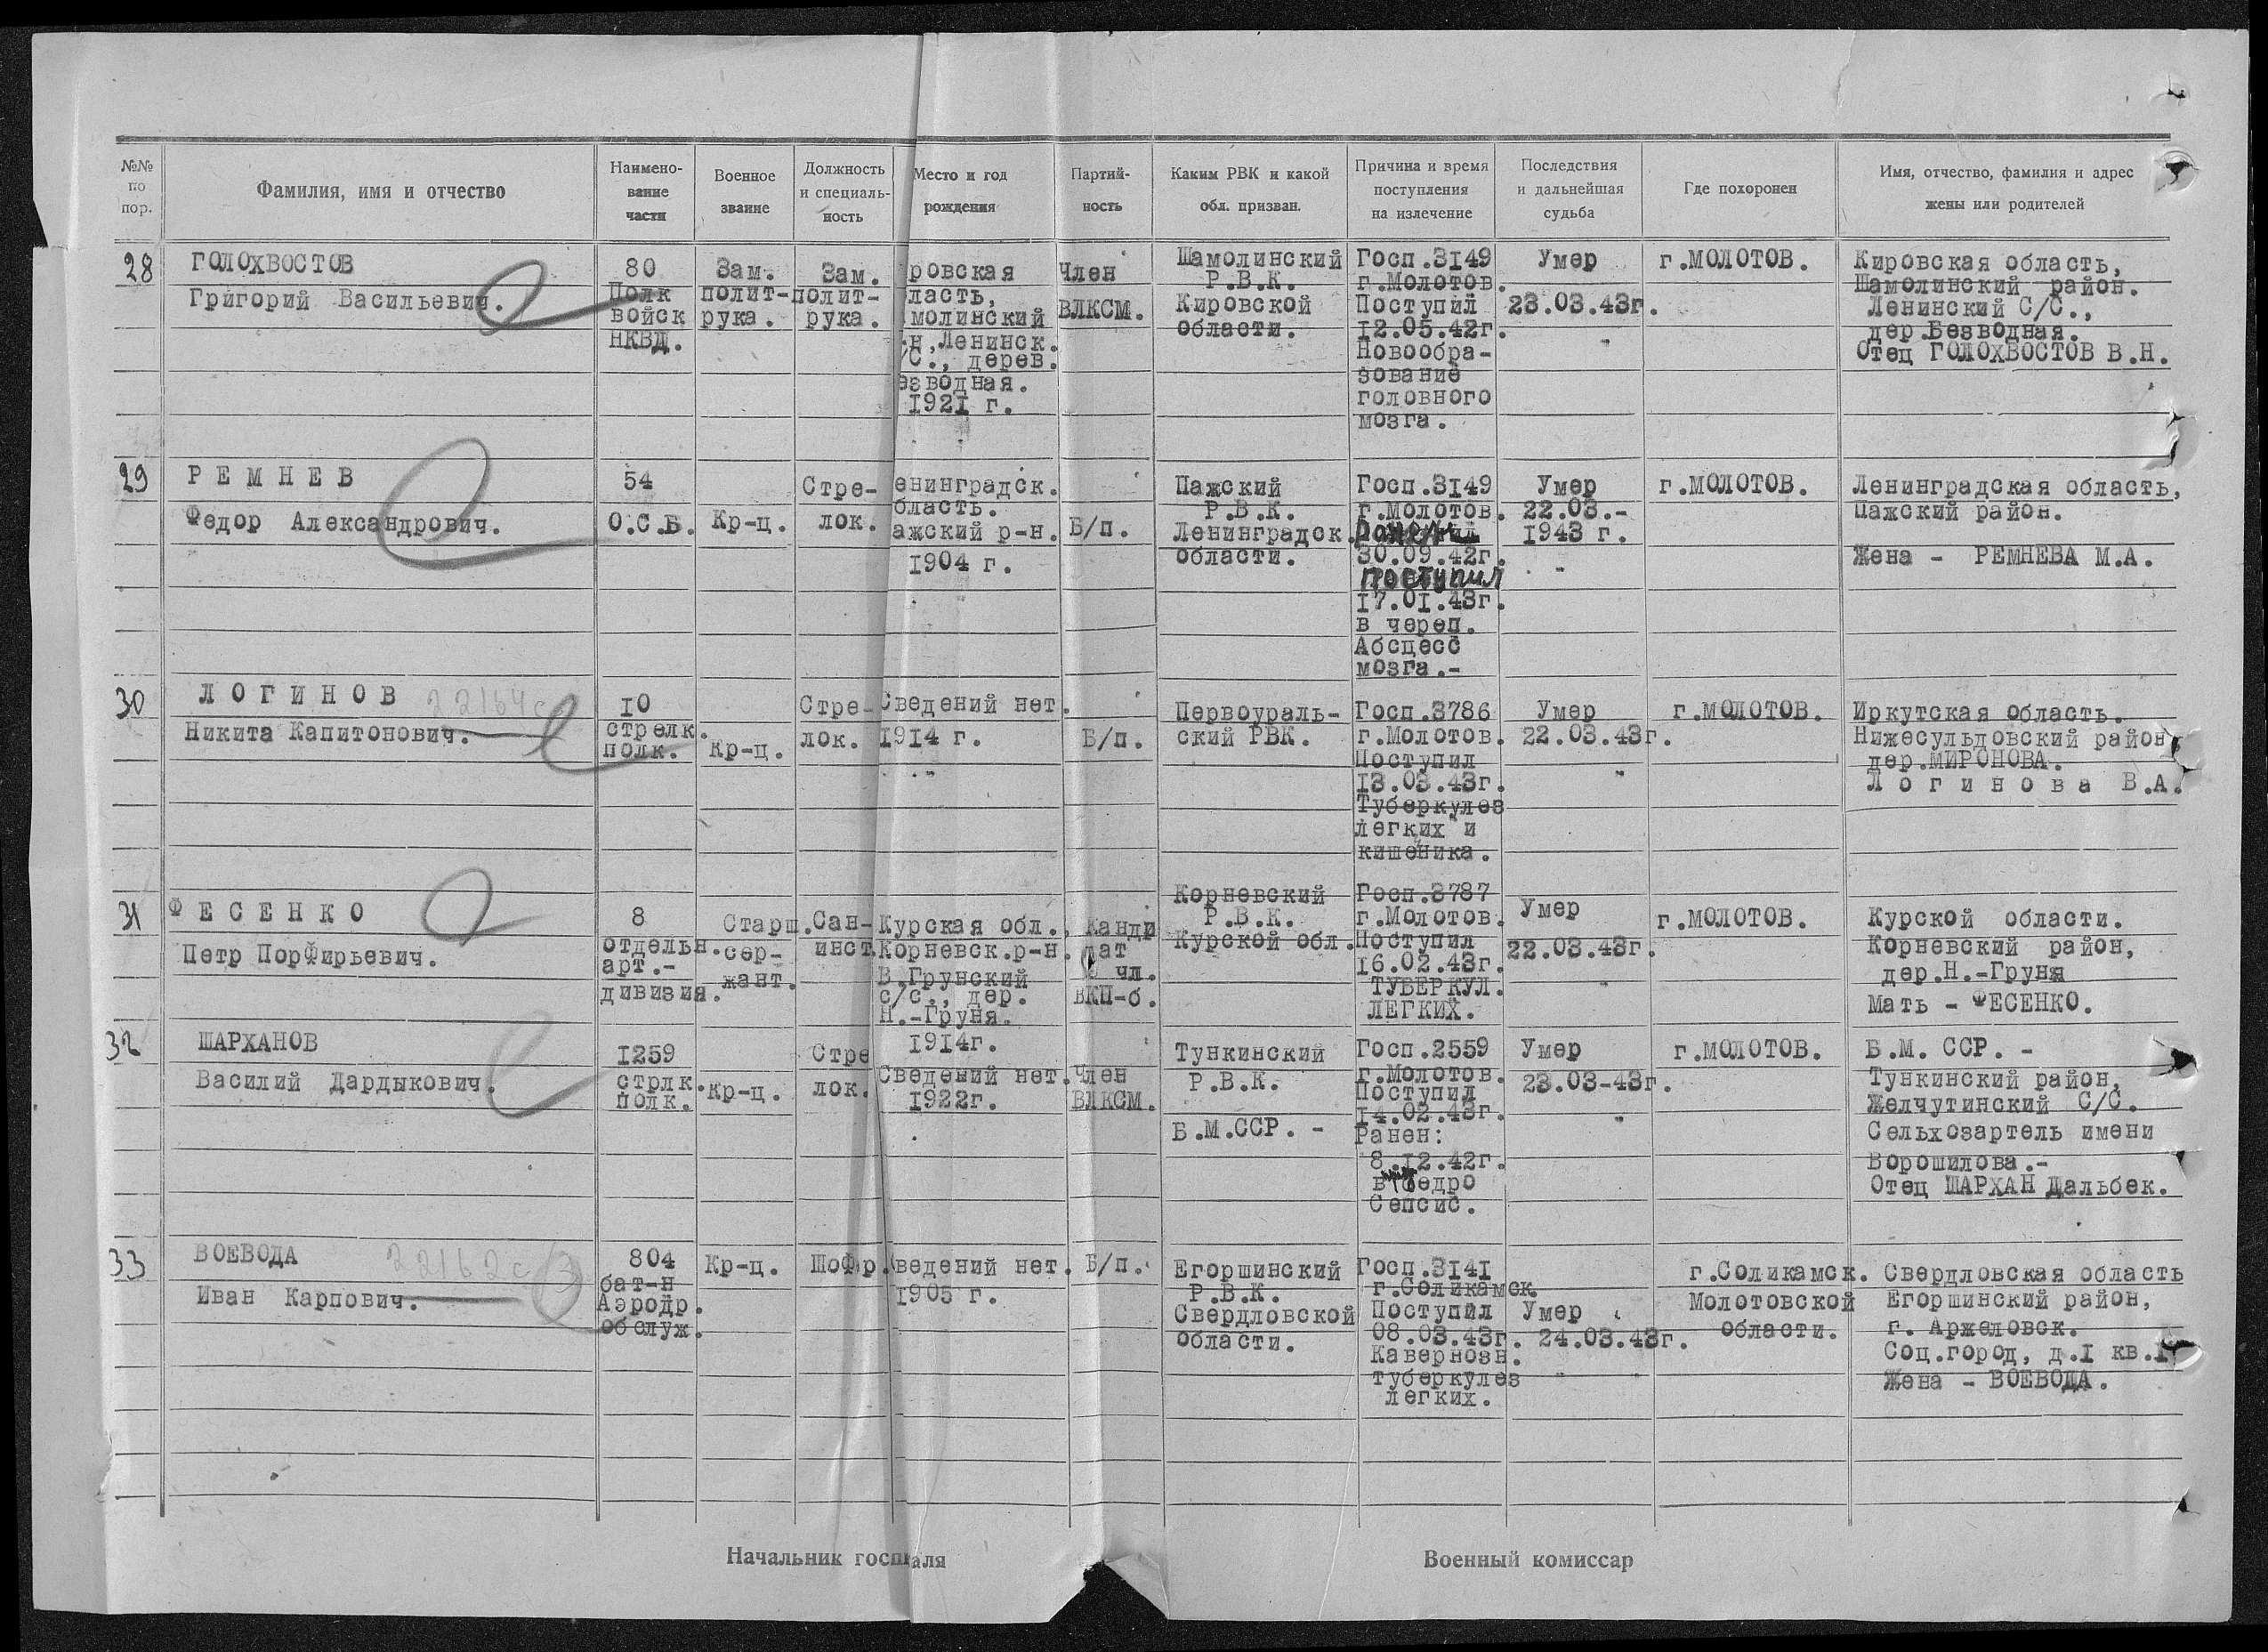 №№ по пор.
Фамилия, имя и отчество
Наимено-
вание
части
Военное
звание
Должность
и специаль-
ность
Место и год
рождения
Партий-
ность
Каким РВК и какой
обл. призван.
Причина и время
поступления
на излечение
Последствия
и дальнейшая
судьба
Где похоронен
Имя, отчество, фамилия и адрес
жены или родителей
28
ГОЛОХВОСТОВ
Григорий Васильевич.
80
Полк
войск
НКВД.
Зам.
полит-
рука.
Зам.
полит-
рука.
ровская
ласть,
молинский
-н,Ленинск.
/С., дерев.
езводная.
1921 г.
Член
ВЛКСМ.
Шамолинский
Р.В.К.
Кировской
области.
Госп.3149
г.Молотов.
Поступил
12.05.42г.
Новообра-
зование
головного
мозга.
Умер
23.03.43г.
г.МОЛОТОВ.
Кировская область,
Шамолинский район.
Ленинский С/С.,
дер.Безводная.
Отец ГОЛОХВОСТОВ В.Н.
29
РЕМНЕВ
Федор Александрович.
54
О.С.Б.
Кр-ц.
Стре-
лок.
енинградск.
бласть.
ажский р-н.
1904 г.
Б/п.
Пажский
Р.В.К.
Ленинградск.
области.
Госп.3149
г.Молотов.
30.09.42г.
поступил
17.01.43г.
в череп.
Абсцесс
мозга.-
Умер
22.03.-
1943 г.
г.МОЛОТОВ.
Ленинградская область,
Пажский район.
Жена - РЕМНЕВА М.А.
30
ЛОГИНОВ 22164с
Никита Капитонович.
10
стрелк.
полк.
Кр-ц.
Стре-
лок.
Сведений нет.
1914 г.
Б/п.
Первоураль-
ский РВК.
Госп.3786
г.Молотов.
Поступил
13.03.43г.
Туберкулез
легких и
кишеника.
Умер
22.03.43г.
г.МОЛОТОВ.
Иркутская область.
Нижесульдовский район,
дер.МИРОНОВА.
Логинова В.А.
31
ФЕСЕНКО
Петр Порфирьевич.
8
отдельн.
арт.-
дивизия.
Старш.
сер-
жант.
Сан-
инст.
Курская обл.,
Корневск.р-н.
В.Грунский
с/с., дер.
Н.-Груня.
1914г.
Канди
дат
чл.
ВКП-б.
Корневский
Р.В.К.
Курской обл.
Госп.3787
г.Молотов.
Поступил
16.02.43г.
ТУБЕРКУЛ.
ЛЕГКИХ.
Умер
22.03.43г.
г.МОЛОТОВ.
Курской области.
Корневский район,
дер.Н.-Груня
Мать - ФЕСЕНКО.
32
ШАРХАНОВ
Василий Дардыкович.
1259
стрлк.
полк.
Кр-ц.
Стре
лок.
Сведений нет.
1922г.
Член
ВЛКСМ.
Тункинский
Р.В.К.
Б.М.ССР. -
Госп.2559
г.Молотов.
Поступил
14.02.43г.
Ранен:
8.12.42г.
в бедро
Сепсис.
Умер
23.03-43г.
г.МОЛОТОВ.
Б.М. ССР. -
Тункинский район,
Желчутинский С/С.
Сельхозартель имени
Ворошилова.-
Отец ШАРХАН Дальбек.
33
ВОЕВОДА 22162с
Иван Карпович.
804
бат-н
Аэродр.
обслуж.
Кр-ц.
Шофр.
Сведений нет.
1905 г.
Б/п.
Егоршинский
Р.В.К.
Свердловской
области.
Госп.3141
г.Соликамск.
Поступил
08.03.43г.
Кавернозн.
туберкулез
легких.
Умер
24.03.43г.
г.Соликамск.
Молотовской
области.
Свердловская область
Егоршинский район,
г. Аржеловск.
Соц.город, д.1 кв.1
Жена - ВОЕВОДА.
Начальник госпиталя
Военный комиссар